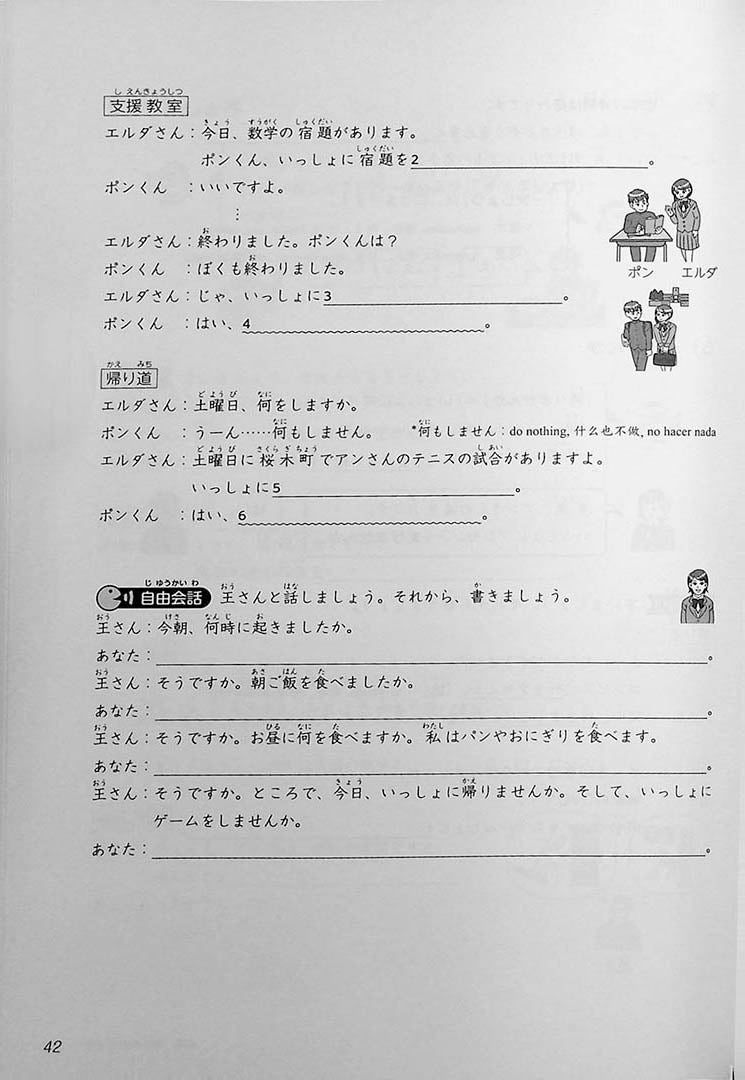 支援教室
エルダさん：今日、数学の宿題があります。
ポンくん、いっしょに宿題を2 。
ポンくん ：いいですよ。
⋮
エルダさん：終わりました。ポンくんは？
ポンくん ：ぼくも終わりました。
エルダさん：じゃ、いっしょに3 。
ポンくん ：はい、4 。
ポン エルダ
帰り道
エルダさん：土曜日、何をしますか。
ポンくん ：うーん……何もしません。 *何もしません：do nothing, 什么也不做, no hacer nada
エルダさん：土曜日に桜木町でアンさんのテニスの試合がありますよ。
いっしょに5 。
ポンくん ：はい、6 。
自由会話 王さんと話しましょう。それから、書きましょう。
王さん：今朝、何時に起きましたか。
あなた： 。
王さん：そうですか。朝ご飯を食べましたか。
あなた： 。
王さん：そうですか。お昼に何を食べますか。私はパンやおにぎりを食べます。
あなた： 。
王さん：そうですか。ところで、今日、いっしょに帰りませんか。そして、いっしょに
ゲームをしませんか。
あなた： 。
42